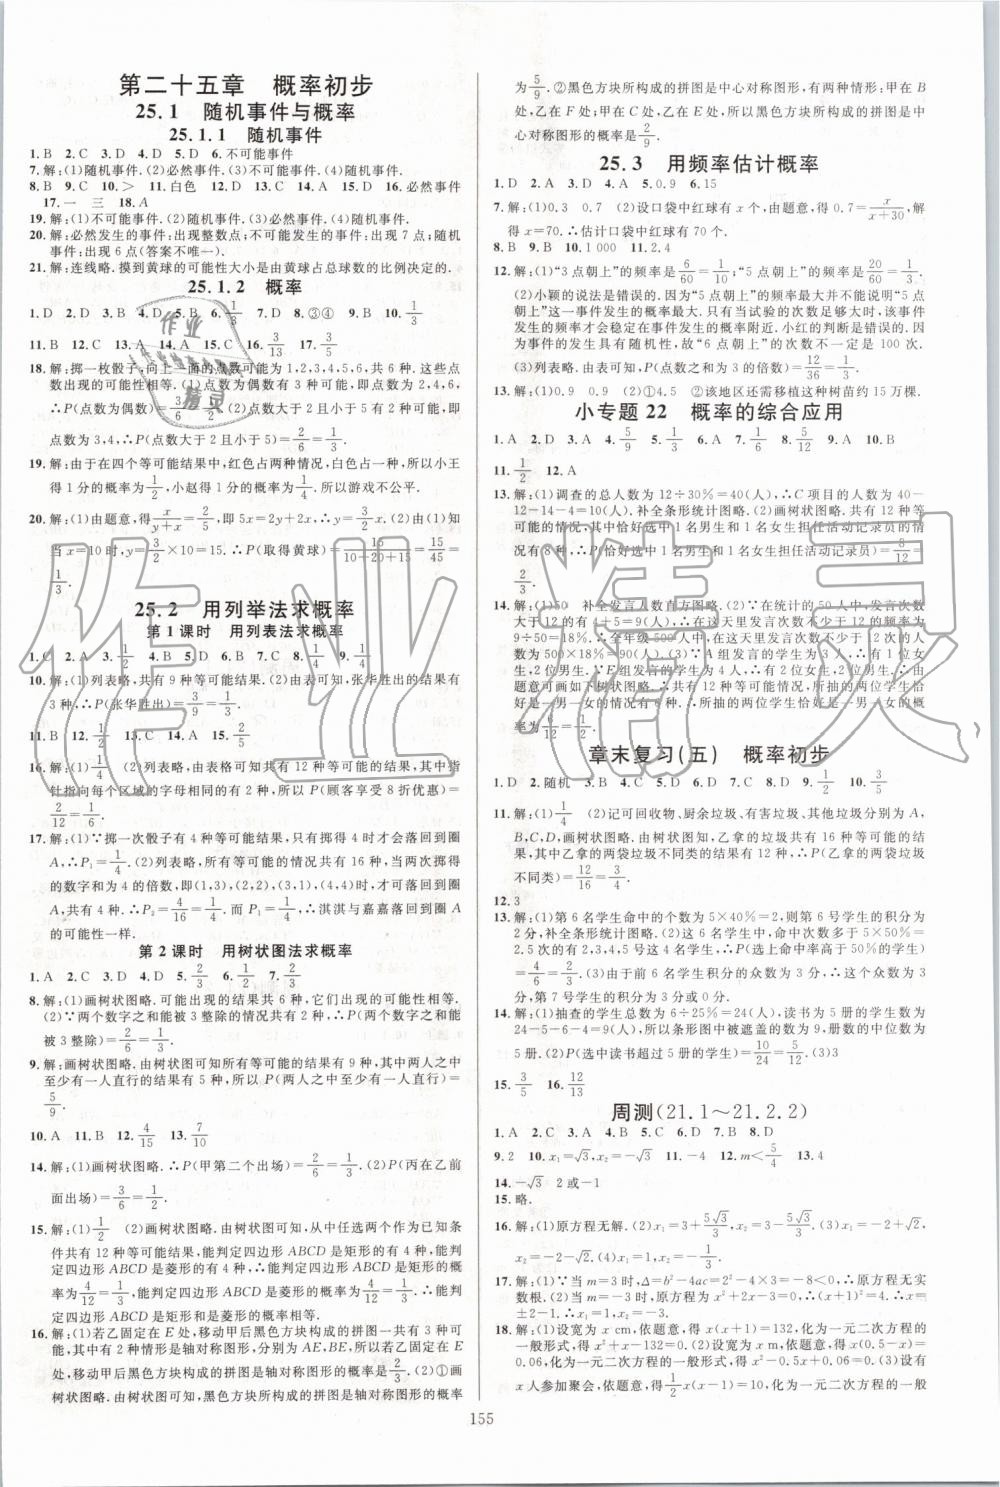 第二十五章　概率初步
25.1　随机事件与概率
25.1.1　随机事件
1.B　2.C　3.D　4.D　5.D　6.不可能事件
7.解:(1)随机事件.(2)必然事件.(3)不可能事件.(4)随机事件.
8.B　9.C　10.>　11.白色　12.D　13.C　14.D　15.D　16.必然事件
17.一　三　18.A
19.解:(1)不可能事件.(2)随机事件.(3)随机事件.(4)随机事件.
20.解:必然发生的事件:出现整数点;不可能发生的事件:出现7点;随机
事件:出现6点(答案不唯一).
21.解:连线略.摸到黄球的可能性大小是由黄球占总球数的比例决定的.
25.1.2　概率
1.D　2.D　3.A　4.D　5.B　6.B　7.1/3　8.③④　9.B　10.1/4
11.B　12.C　13.A　14.A　15.C　16.3/13　17.3/5
18.解:掷一枚骰子,向上一面的点数可能为1,2,3,4,5,6,共6种.这些点
数出现的可能性相等.(1)点数为偶数有3种可能,即点数为2,4,
6,∴P(点数为偶数)=3/6=1/2.
数为3,4,∴P(点数大于2且小于5)=2/6=1/3.
19.解:由于在四个等可能结果中,红色占两种情况,白色占一种,所以小王
得1分的概率为1/2,小赵得1分的概率为1/4.所以游戏不公平.
20.解:(1)由题意,得x/(y+x)=2/5,即5x=2y+2x,∴y=3/2x.(2)由(1)知
当x=10时,y=3/2×10=15.∴P(取得黄球)=15/(10+20+15)=15/45=
1/3.
25.2　用列举法求概率
第1课时　用列表法求概率
1.C　2.A　3.1/2　4.A　5.B　6.B　7.C　8.1/4　9.1/4
10.解:(1)列表略,共有9种等可能结果.(2)由表可知,张华胜出的结果有
3种,∴P(张华胜出)=3/9=1/3.
11.B　12.1/2　13.C　14.A　15.C
16.解:(1)1/2　(2)列表略,由表格可知共有12种等可能的结果,其中指
针指向每个区域的字母相同的有2种,所以P(顾客享受8折优惠)=
2/12=1/6.
17.解:(1)∵掷一次骰子有4种等可能结果,只有掷得4时才会落回到圈
A,∴P₁=1/4.(2)列表略,所有等可能的情况共有16种,当两次掷得
的数字和为4的倍数,即(1,3),(2,2),(3,1),(4,4)时,才可落回到圈
A,共有4种,∴P₂=4/16=1/4.∴P₁=P₂,∴淇淇与嘉嘉落回到圈A
的可能性一样.
第2课时　用树状图法求概率
1.A　2.C　3.D　4.D　5.2/3　6.D　7.2/3
8.解:(1)画树状图略.可能出现的结果共6种,它们出现的可能性相等.
(2)∵两个数字之和能被3整除的情况共有2种,∴P(两个数字之和能
被3整除)=2/6=1/3.
9.解:画树状图略.由树状图可知所有等可能的结果有9种,两人之中
至少有一人直行的结果有5种,所以P(两人之中至少有一人直行)=
5/9.
10.A　11.B　12.4/15　13.7/10
14.解:(1)画树状图略.∴P(甲第二个出场)=2/6=1/3.(2)P(丙在乙前
面出场)=3/6=1/2.
15.解:(1)1/2　(2)画树状图略.由树状图可知,从中任选两个作为已知条
件共有12种等可能结果,能判定四边形ABCD是矩形的有4种,能判
定四边形ABCD是菱形的有4种,∴能判定四边形ABCD是矩形的概率为
4/12=1/3,能判定四边形ABCD是菱形的概率为4/12=1/3,∴能判定四
边形ABCD是矩形和是菱形的概率相等.
16.解:(1)若乙固定在E处,移动甲后黑色方块构成的拼图一共有3种可
能,其中有2种情形是轴对称图形,分别为AE,BE,所以若乙固定在E
处,移动甲后黑色方块构成的拼图是轴对称图形的概率是2/3.(2)①画
树状图略,由树状图可知,黑色方块所构成的拼图是轴对称图形的概率
为5/9.②黑色方块所构成的拼图是中心对称图形有两种情形:甲在
B处,乙在F处;甲在C处,乙在E处,所以黑色方块所构成的拼图是中
心对称图形的概率是2/9.
25.3　用频率估计概率
1.D　2.A　3.D　4.A　5.0.9　6.15
7.解:(1)0.3　0.7　(2)设口袋中红球有x个,由题意,得0.7=x/(x+30),
解得x=70.∴估计口袋中红球有70个.
8.B　9.B　10.1 000　11.2.4
12.解:(1)“3点朝上”的频率是6/60=1/10;“5点朝上”的频率是20/60=1/3.
(2)小颖的说法是错误的.因为“5点朝上”的频率最大并不能说明“5点
朝上”这一事件发生的概率最大.只有当试验的次数足够大时,该事件
发生的频率才会稳定在事件发生的概率附近.小红的判断是错误的.因
事件的发生具有随机性,故“6点朝上”的次数不一定是100次.
(3)列表略.由表可知,P(点数之和为3的倍数)=12/36=1/3.
13.解:(1)0.9　0.9　(2)①4.5　②该地区还需移植这种树苗约15万棵.
小专题22　概率的综合应用
1.A　2.D　3.A　4.5/9　5.1/3　6.D　7.1/5　8.5/12　9.A　10.B
11.1/2　12.A
13.解:(1)调查的总人数为12÷30%=40(人),∴C项目的人数为40-
12-14-4=10(人).补全条形统计图略.(2)画树状图略.共有12种等
可能的情况,其中恰好选中1名男生和1名女生担任活动记录员的情
况有8种,∴P(恰好选中1名男生和1名女生担任活动记录员)=8/12
=2/3.
14.解:(1)50　补全发言人数直方图略.(2)∵在统计的50人中,发言次数
大于12的有4+5=9(人),∴在这天里发言次数不少于12的频率为
9÷50=18%.∴全年级500人中,在这天里发言次数不少于12的次数为
500×18%=90(人).(3)∵A组发言的学生为3人,∴有1位女生,
2位男生.∵E组发言的学生为4人,∴有2位女生,2位男生.∴由
题意可画如下树状图略.∴共有12种情况,所抽的两位学生恰
好是一男一女的情况有6种,∴所抽的两位学生恰好是一男一女的概
率为6/12=1/2.
章末复习(五)　概率初步
1.D　2.随机　3.B　4.C　5.B　6.D　7.C　8.D　9.1/2　10.3/5
11.解:(1)1/4　(2)记可回收物、厨余垃圾、有害垃圾、其他垃圾分别为A,
B,C,D,画树状图略.由树状图知,乙拿的垃圾共有16种等可能的结
果,其中乙拿的两袋垃圾不同类的结果有12种,∴P(乙拿的两袋垃圾
不同类)=12/16=3/4.
12.3
13.解:(1)第6名学生命中的个数为5×40%=2,则第6号学生的积分为
2分,补全条形统计图略.(2)这6名学生中,命中次数多于5×50%=
2.5次的有2,3,4,5号这4名学生,∴P(选上命中率高于50%的学生)=
4/6=2/3.(3)由于前6名学生积分的众数为3分,
3分,第7号学生的积分为3分或0分.
14.解:(1)抽查的学生总数为6÷25%=24(人),读书为5册的学生数为
24-5-6-4=9(人),所以条形图中被遮盖的数为9,册数的中位数为
5册.(2)P(选中读书超过5册的学生)=10/24=5/12.(3)3
15.3/5　16.12/13
周测(21.1～21.2.2)
1.A　2.C　3.A　4.C　5.D　6.A　7.B　8.D
9.2　10.x₁=√3,x₂=-√3　11.-4　12.m<5/4　13.4
14.-√3　2或-1
15.略.
16.解:(1)原方程无解.(2)x₁=3+5√3/3,x₂=3-5√3/3.(3)x₁=-2+√2,
x₂=-2-√2.(4)x₁=1,x₂=-1/3.
17.解:(1)∵当m=3时,Δ=b²-4ac=2²-4×3=-8<0,∴原方程无实
数根.(2)当m=-3时,原方程为x²+2x-3=0,∴(x+1)²=4,∴x+1=
±2,∴x₁=1,x₂=-3.
18.解:(1)设宽为x cm,依题意,得x(x+1)=132,化为一元二次方程的
一般形式,得x²+x-132=0.(2)设宽为x m,依题意,得x(x-0.5)=
0.06,化为一元二次方程的一般形式,得x²-0.5x-0.06=0.(3)设有
x人参加聚会,依题意,得1/2x(x-1)=10,化为一元二次方程的一般
155
作业精灵